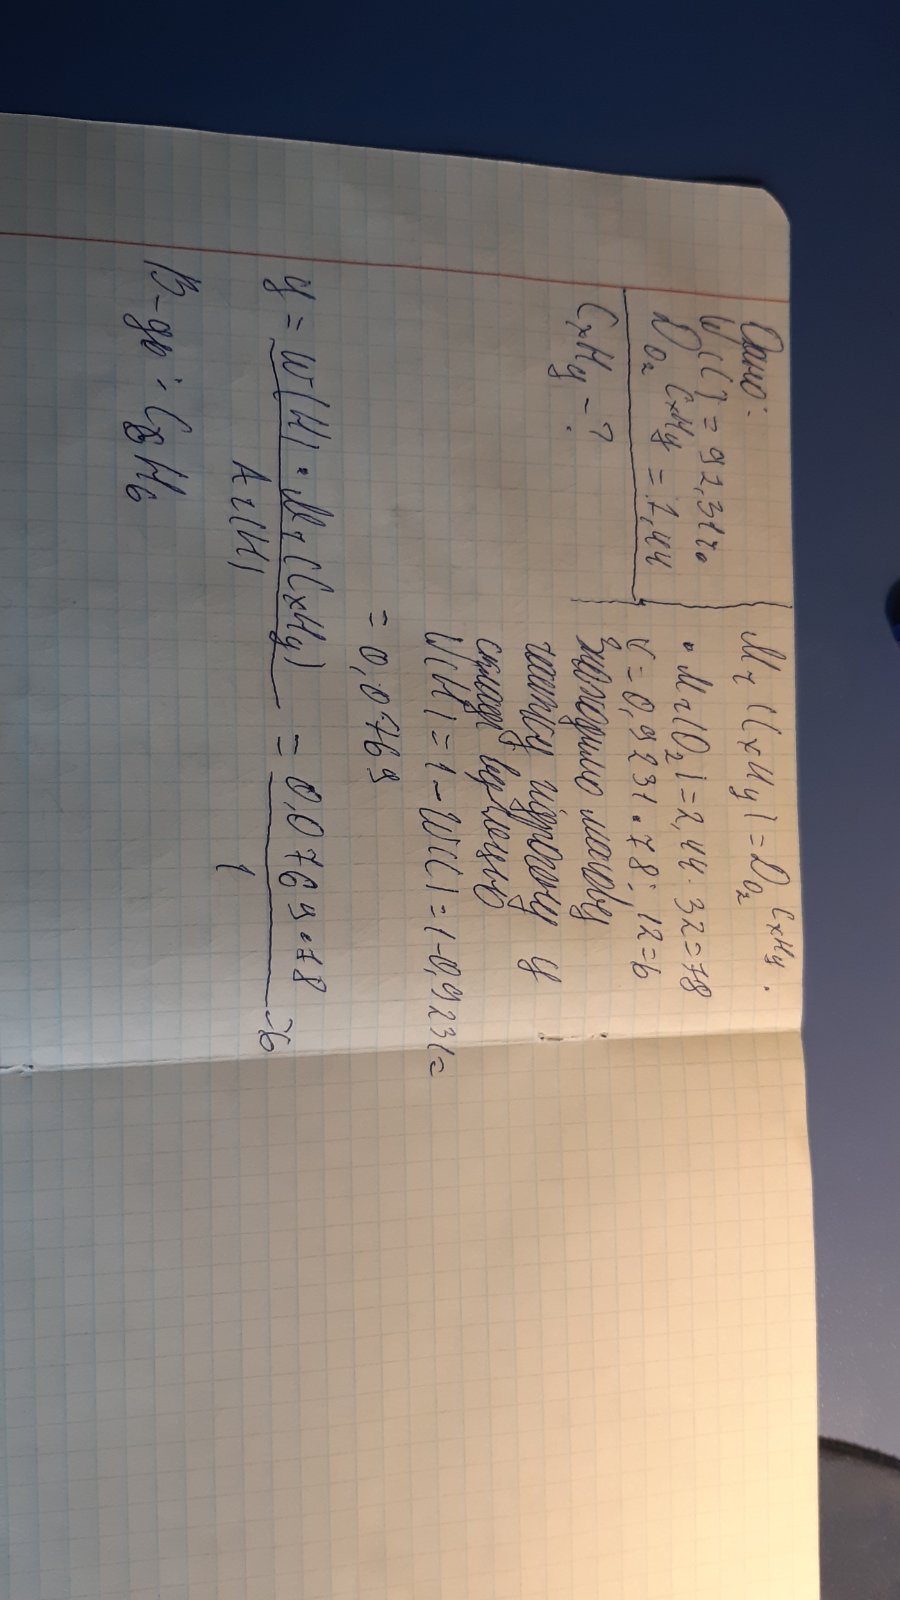 Дано:
W(C) = 92,31%
D O₂ CxHy = 2,44
CxHy - ?
Mr (CxHy) = D O₂ CxHy ·
· Mr(O₂) = 2,44 · 32 = 78
C = 0,9231 · 78 : 12 = 6
Знаходимо масову
частку гідрогену у
складі вуглеводню
W(H) = 1 - W(C) = 1 - 0,9231 =
= 0,0769
y = W(H) · Mr(CxHy) / Ar(H) = 0,0769 · 78 / 1 = 6
В-дь: C₆H₆